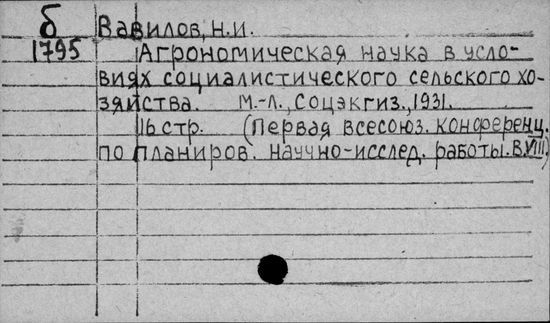 б Вавилов, н.и.
1795 Агрономическая наука в усло-
виях социалистического сельского хо-
зяйства. М.-Л., Соцэкгиз., 1931.
16 стр. (Первая всесоюз. конференц.
по планиров. научно-исслед. работы. В.VIII.)